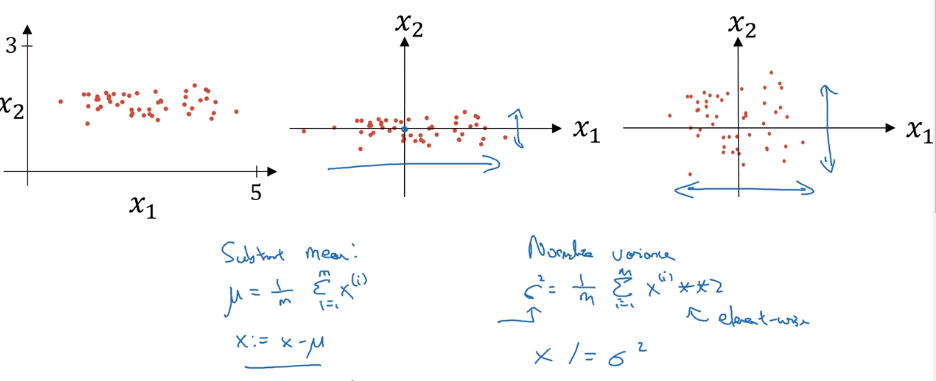 3
x₂
x₁
5
x₂
x₁
x₂
x₁
Subtract mean:
μ = 1/m ∑_{i=1}^{m} x^{(i)}
x := x - μ
Normalize variance
σ² = 1/m ∑_{i=1}^{m} x^{(i)} **2
element-wise
x /= σ²